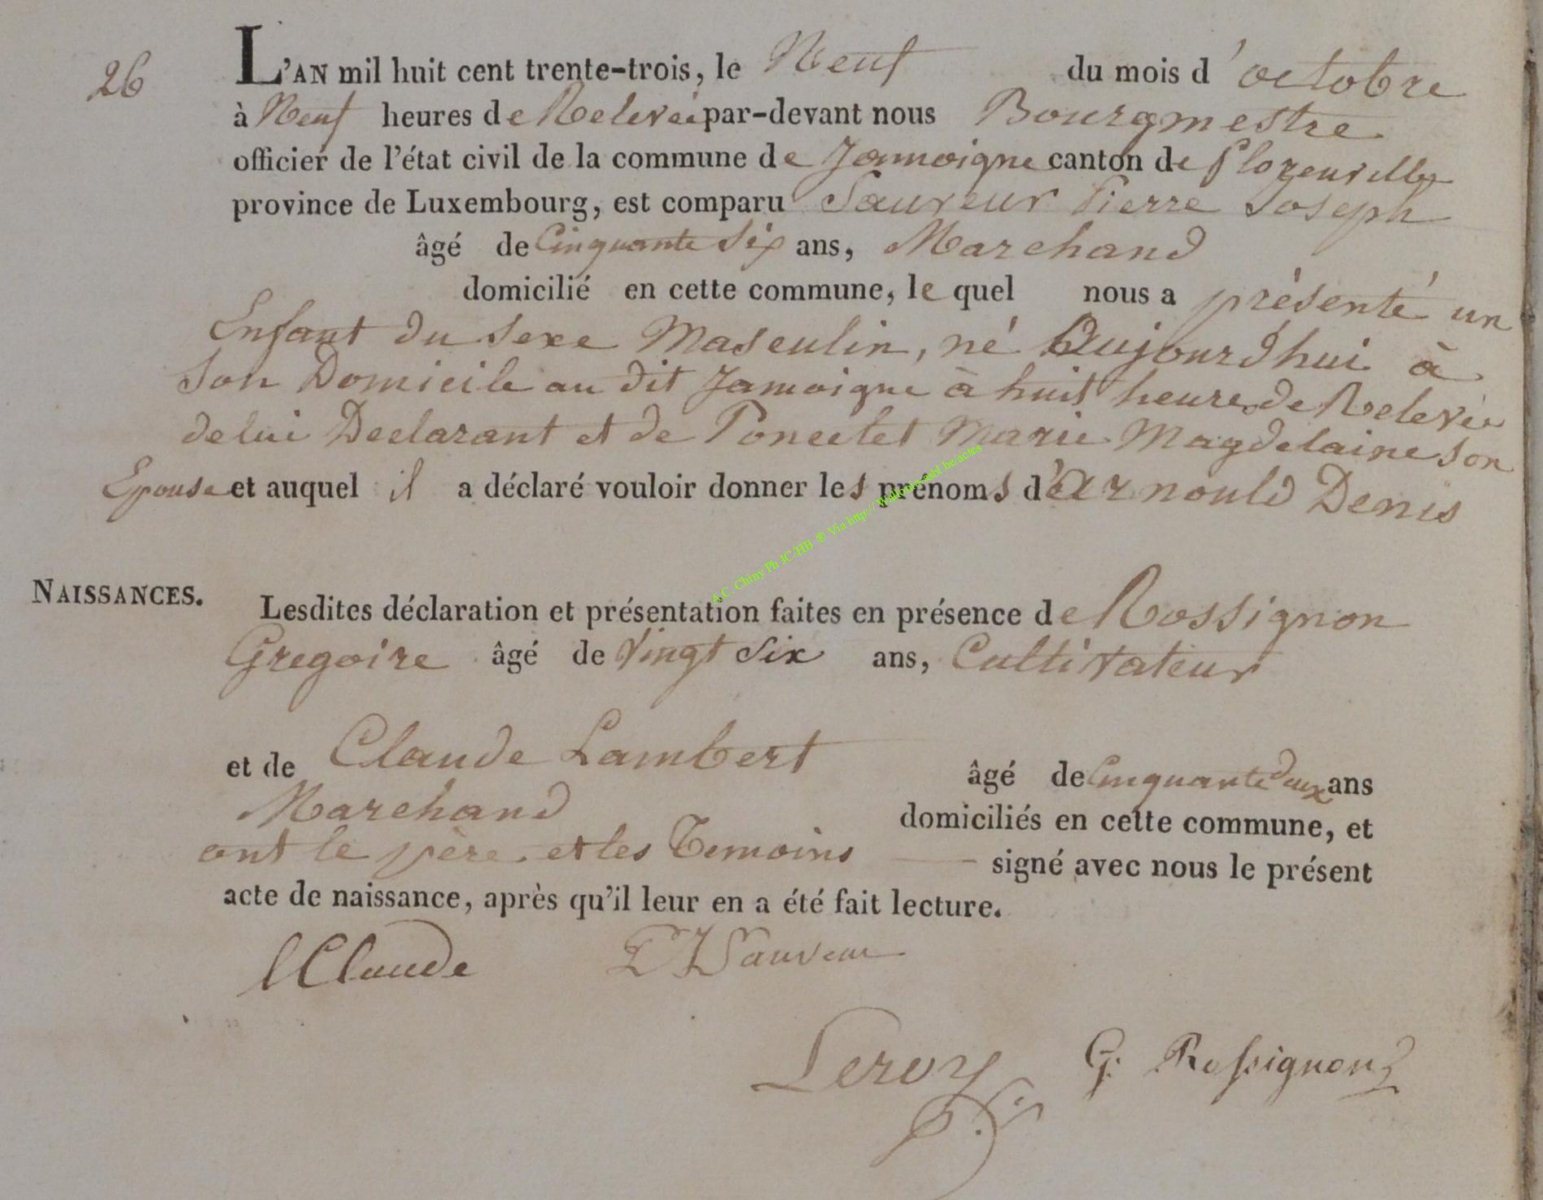 26
L'AN mil huit cent trente-trois, le Neuf du mois d'octobre
à Neuf heures de Relevée par-devant nous Bourgmestre
officier de l'état civil de la commune de Jamoigne canton de Florenville
province de Luxembourg, est comparu Sauveur Pierre Joseph
âgé de Cinquante Six ans, Marchand
domicilié en cette commune, le quel nous a présenté un
Enfant du sexe Masculin, né Aujourd'hui à
Son Domicile au dit Jamoigne à huit heures de Relevée
de lui Declarant et de Poncelet Marie Magdelaine son
Epouse et auquel il a déclaré vouloir donner les prénoms d'Arnould Denis
NAISSANCES.
Lesdites déclaration et présentation faites en présence de Rossignon
Gregoire âgé de Vingt Six ans, Cultivateur
et de Claude Lambert âgé de Cinquante deux ans
Marchand domiciliés en cette commune, et
ont le père et les Temoins signé avec nous le présent
acte de naissance, après qu'il leur en a été fait lecture.
LClaude PJSauveur
Leroy G. Rossignon